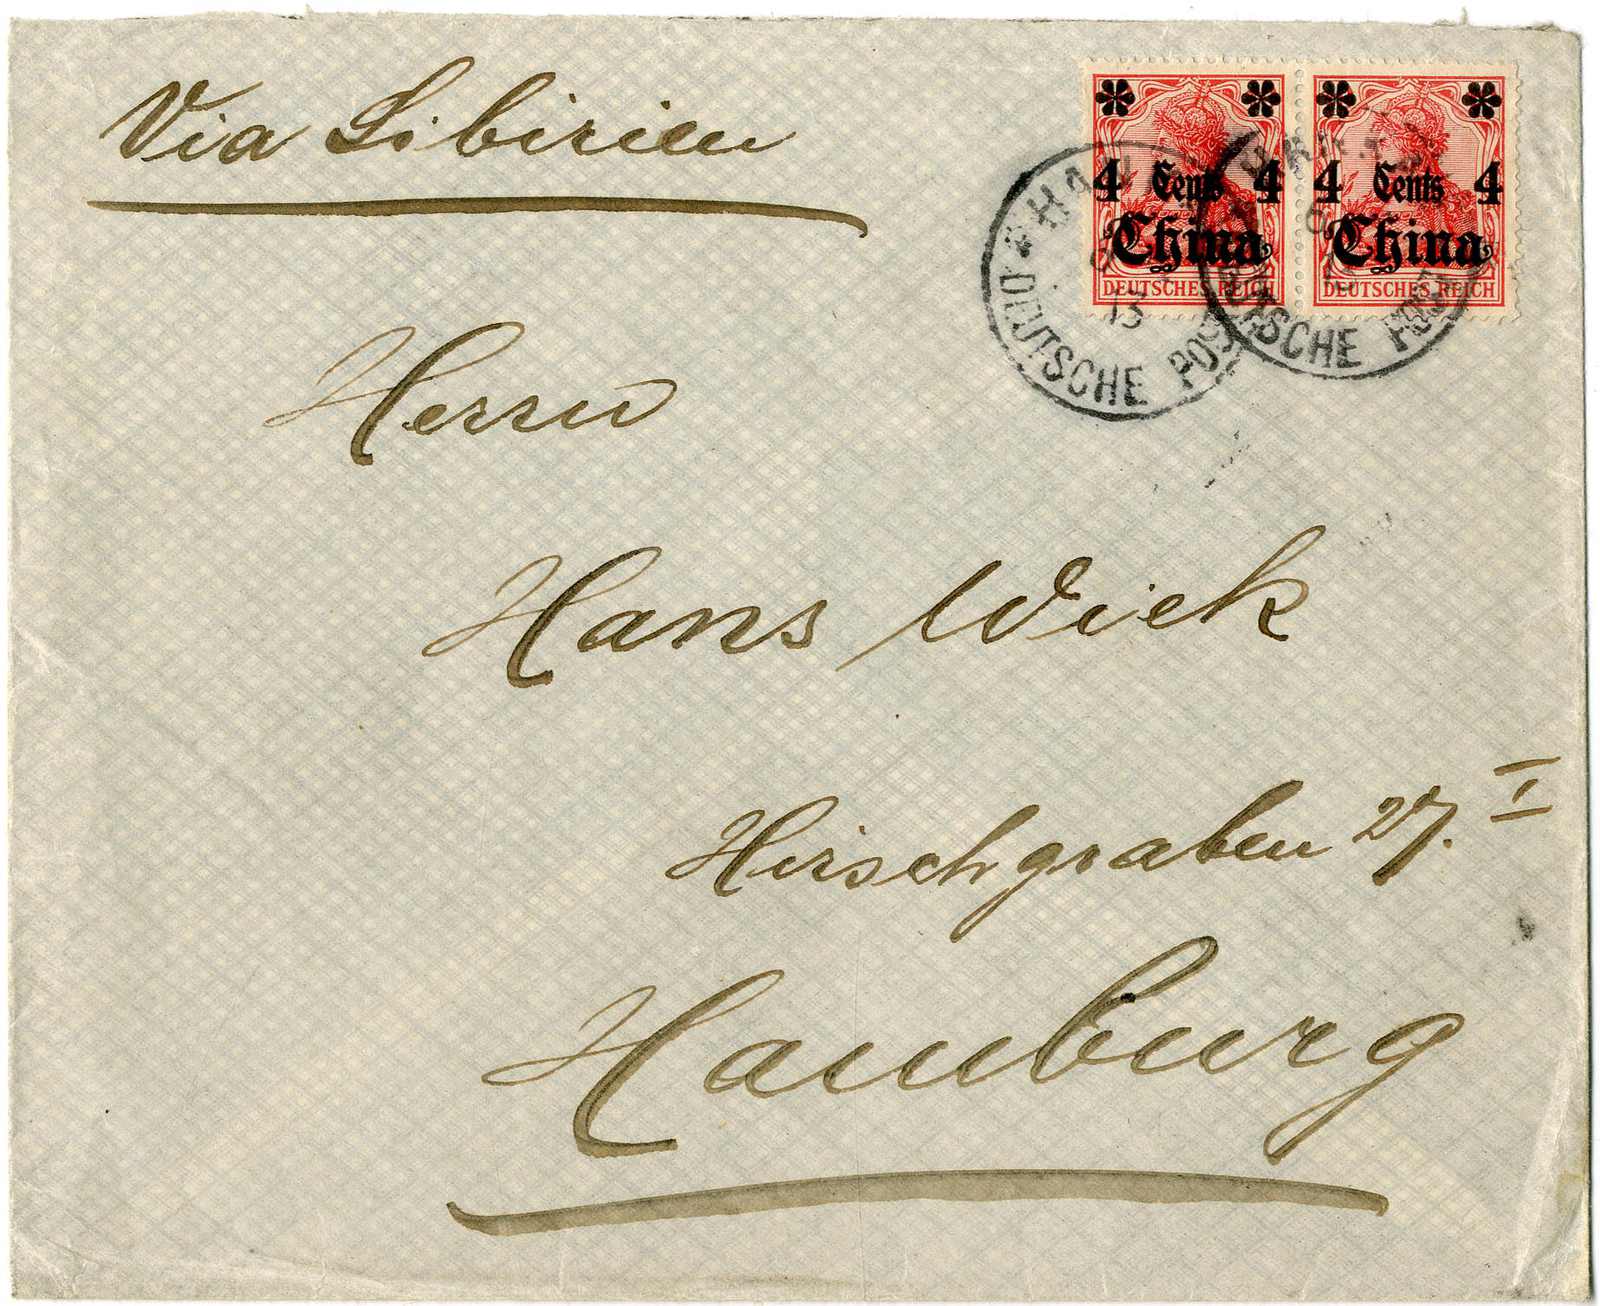 Via Sibirien
4 Cents 4
China
DEUTSCHES REICH
4 Cents 4
China
DEUTSCHES REICH
13
DEUTSCHE POST
DEUTSCHE POST
Herrn
Hans Wiek
Hirschgraben 27. I
Hamburg